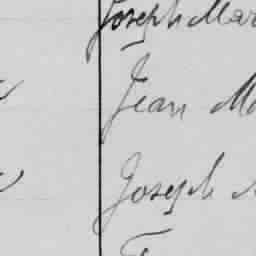 Joseph Mar
Jean Ma
Joseph